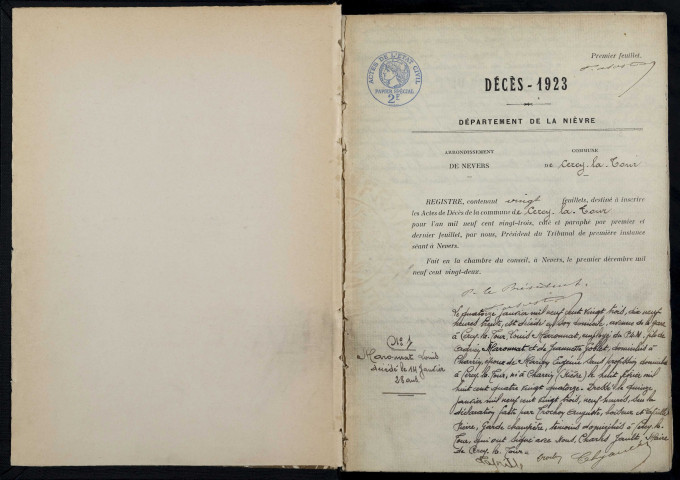 Premier feuillet.
ACTES DE L'ÉTAT CIVIL
PAPIER SPÉCIAL
2F
DÉCÈS - 1923
DÉPARTEMENT DE LA NIÈVRE
ARRONDISSEMENT
DE NEVERS
COMMUNE
DE Cercy-la-Tour
REGISTRE, contenant vingt feuillets, destiné à inscrire
les Actes de Décès de la commune de Cercy-la-Tour
pour l'an mil neuf cent vingt-trois, côté et paraphé par premier et
dernier feuillet, par nous, Président du Tribunal de première instance
séant à Nevers.
Fait en la chambre du conseil, à Nevers, le premier décembre mil
neuf cent vingt-deux.
P. le Président.
No 1
Maronnat Louis
décédé le 14 Janvier
28 ans
Le quatorze janvier mil neuf cent vingt trois, dix neuf
heures trente, est décédé en son domicile, avenue de la gare
à Cercy-la-Tour, Louis Maronnat, employé du P.L.M, fils de
Maronnat et de Jeannette Joblet, domiciliés à
Charrin, époux de Eugénie sans profession domiciliée
à Cercy-la-Tour, né à Charrin (Nièvre) le huit février mil
huit cent quatre vingt quatorze. Dressé le quinze
janvier mil neuf cent vingt trois, neuf heures, sur la
déclaration faite par Trochoy Auguste,
garde champêtre, témoins domiciliés à Cercy-la-
Tour, qui ont signé avec Nous, Charles Gault, Maire
de Cercy-la-Tour.